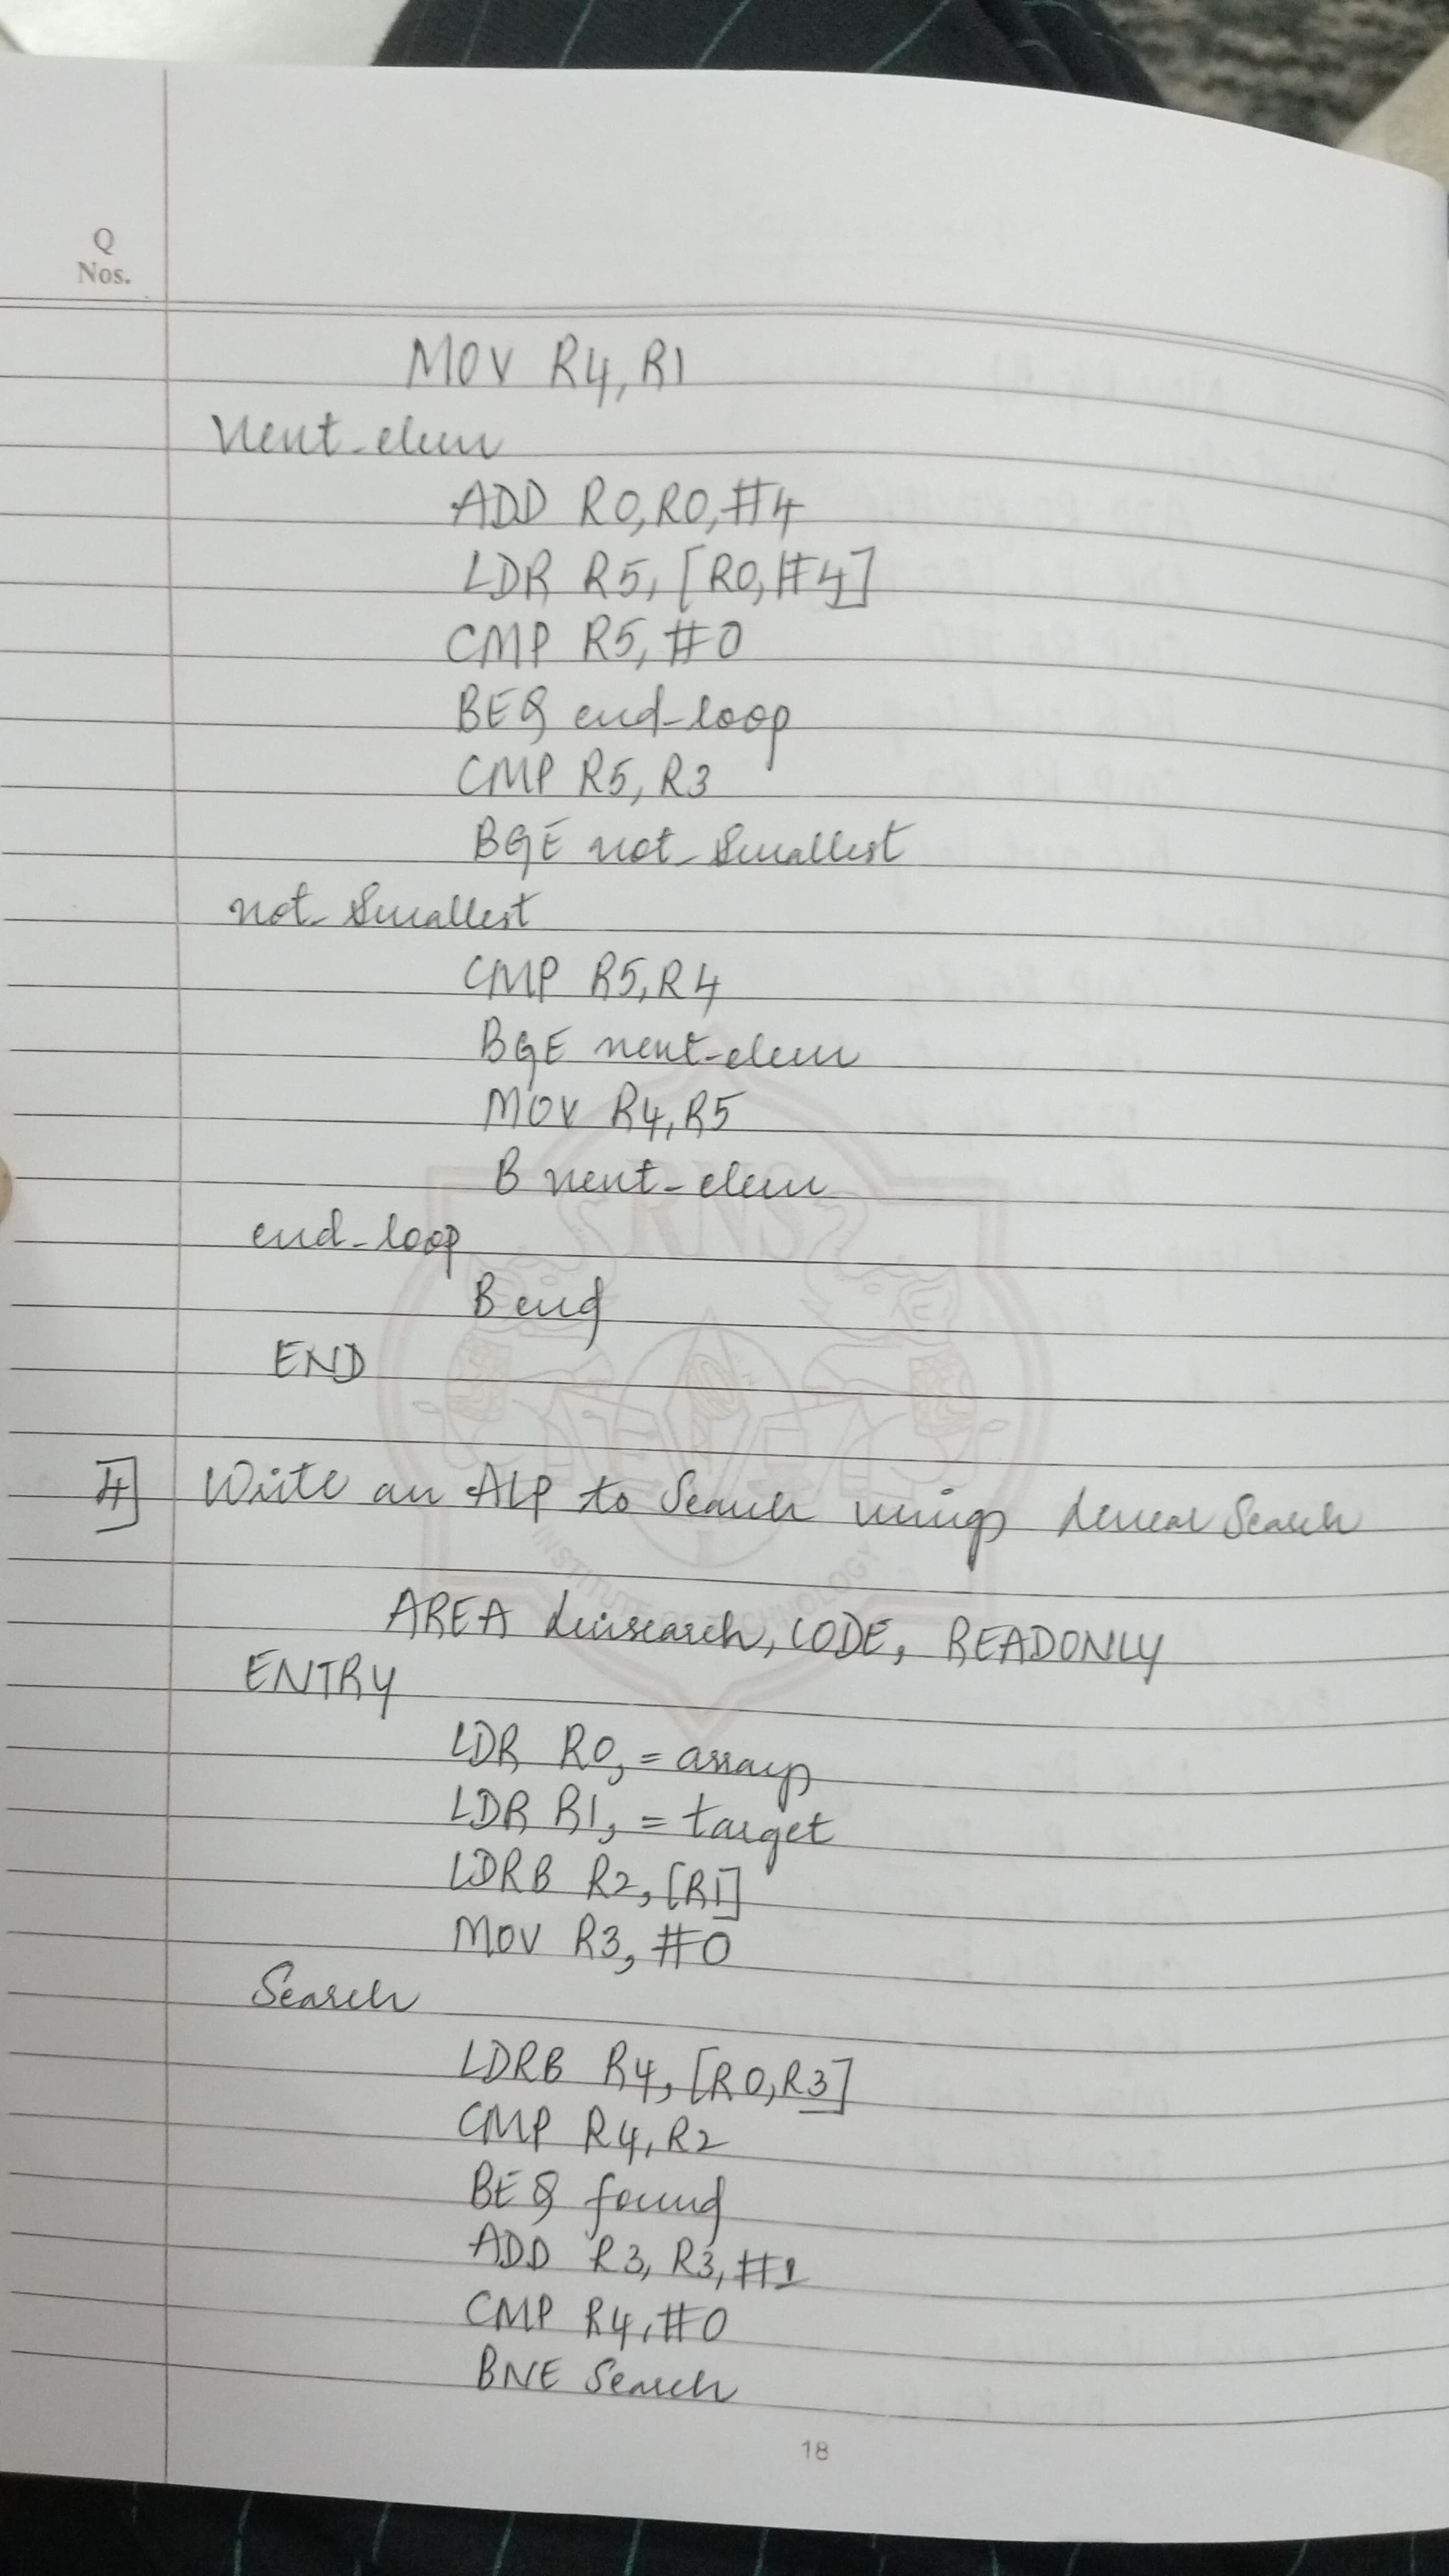 Q
Nos.
MOV R4, R1
next_elem
ADD R0, R0, #4
LDR R5, [R0, #4]
CMP R5, #0
BEQ end_loop
CMP R5, R3
BGE not_Smallest
not_Smallest
CMP R5, R4
BGE next_elem
MOV R4, R5
B next_elem
end_loop
B end
END
RNS
4] Write an ALP to Search using linear Search
INSTITUTE OF TECHNOLOGY
AREA linsearch, CODE, READONLY
ENTRY
LDR R0, = array
LDR R1, = target
LDRB R2, [R1]
MOV R3, #0
Search
LDRB R4, [R0, R3]
CMP R4, R2
BEQ found
ADD R3, R3, #1
CMP R4, #0
BNE Search
18